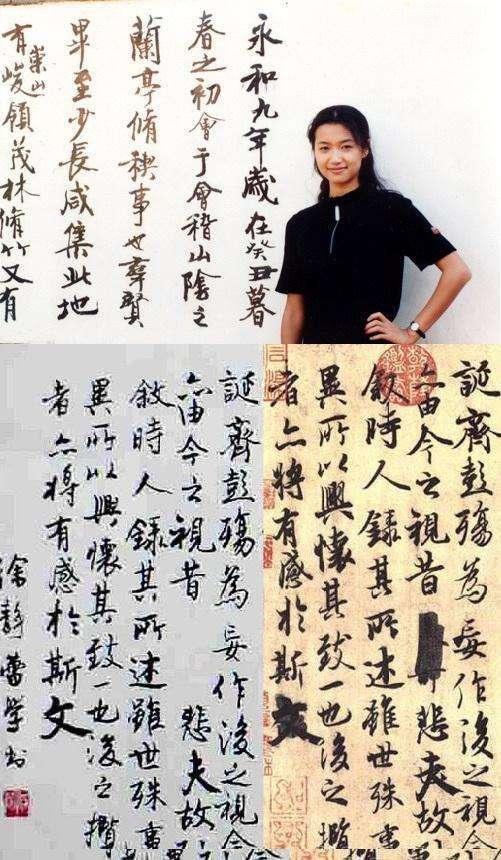 永和九年歲在癸丑暮
春之初會于會稽山陰之
蘭亭脩稧事也羣賢
畢至少長咸集此地
有崇山峻領茂林脩竹又有
誕齊彭殤為妄作後之視今
亦由今之視昔悲夫故
敘時人錄其所述雖世殊事
異所以興懷其致一也後之攬
者亦將有感於斯文
徐靜蕾學書
誕齊彭殤為妄作後之視今
亦由今之視昔悲夫故
敘時人錄其所述雖世殊事
異所以興懷其致一也後之攬
者亦將有感於斯文